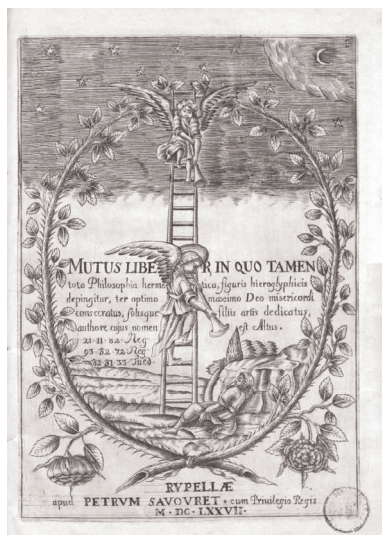 MUTUS LIBER IN QUO TAMEN
tota Philosophia hermetica, figuris hieroglyphicis
depingitur, ter optimo maximo Deo misericordi
consecratus, solisque filiis artis dedicatus,
authore cujus nomen est Altus.
21·11·82·Neg:
93·82·72·Neg:
82·81·33·Tued.
RVPELLÆ
apud PETRVM SAVOVRET · cum Privilegio Regis
M·DC·LXXVII.